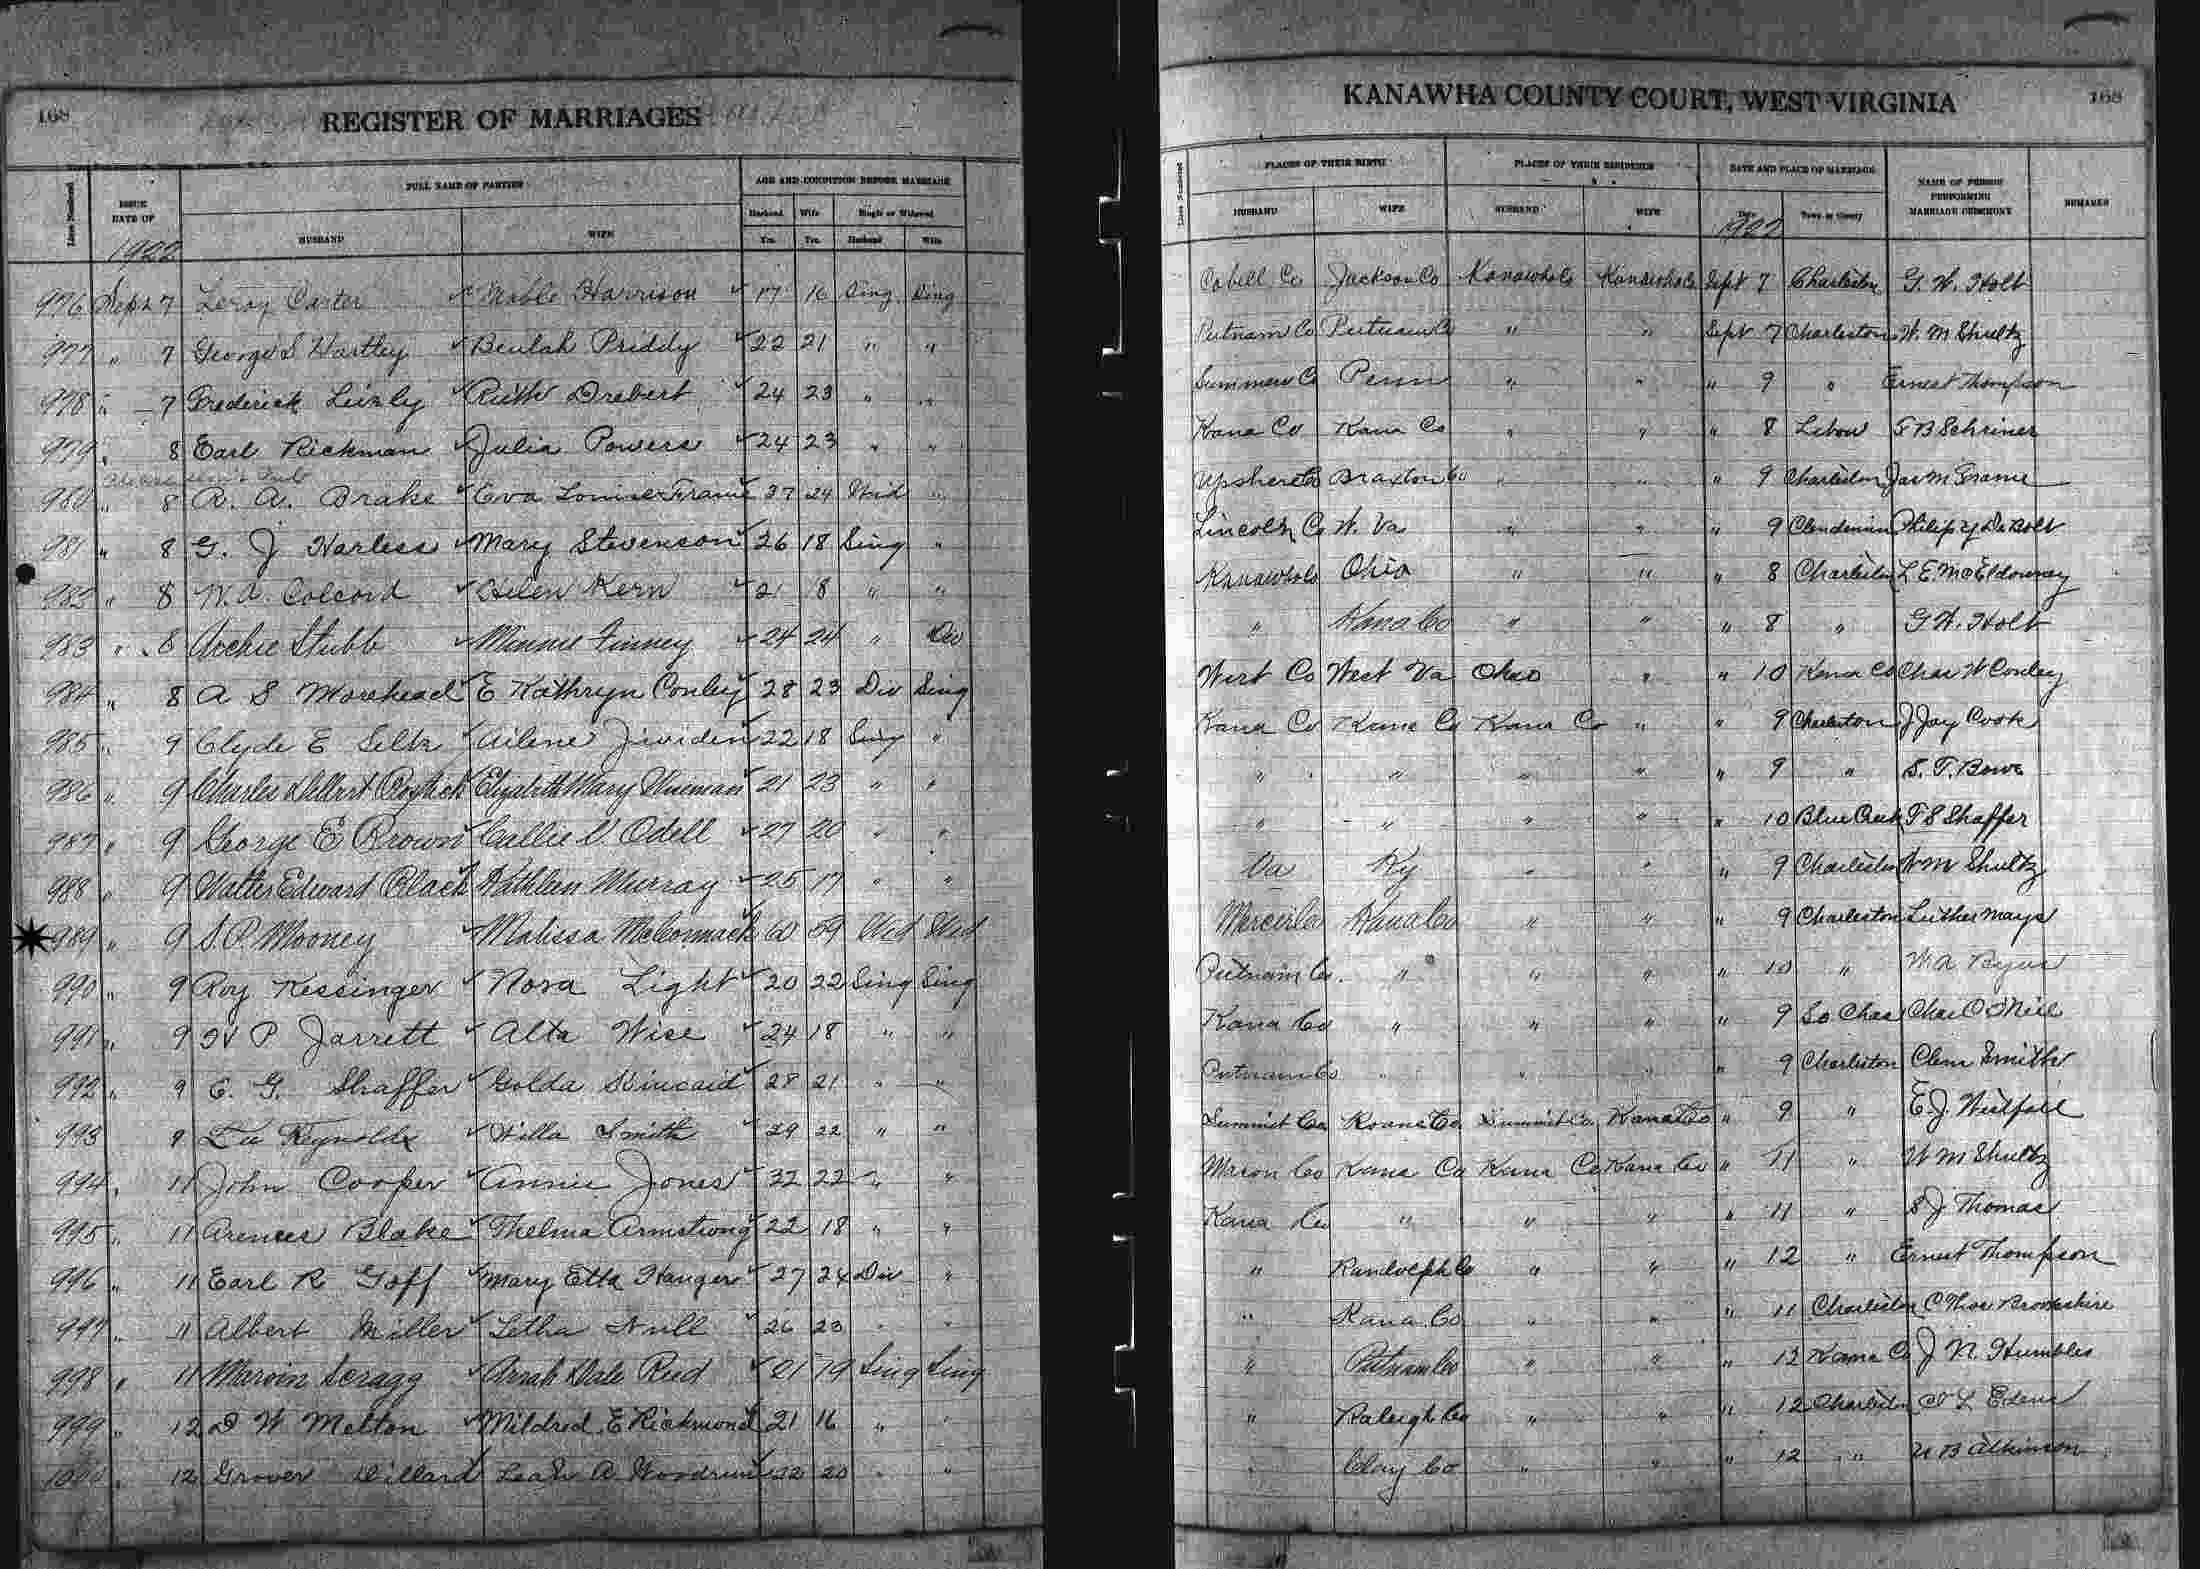 168
REGISTER OF MARRIAGES
Lines Numbered
ISSUE DATE OF
FULL NAME OF PARTIES
AGE AND CONDITION BEFORE MARRIAGE
HUSBAND WIFE
Husband Wife Single or Widowed
Yrs. Yrs. Husband Wife
1922
976 Sept 7 Leroy Carter Mable Harrison 17 16 Sing Sing
977 " 7 George S Hartley Beulah Priddy 22 21 " "
978 " 7 Frederick Ruth Drebert 24 23 " "
979 " 8 Earl Rickman Julia Powers 24 23 " "
980 " 8 R. A. Brake Eva Louise Frame 37 24 Wid "
981 " 8 G. J Harless Mary Stevenson 26 18 Sing "
982 " 8 W. A. Colcord Helen Kern 21 18 " "
983 " 8 Archie Stubb Minnie Finney 24 24 " Div
984 " 8 A S Morehead E Kathryn Conley 28 23 Div Sing
985 " 9 Clyde E Ailene Jividen 22 18 Sing "
986 " 9 Charles Delbert Bostick Elizabeth Mary Wueman 21 23 " "
987 " 9 George E Brown Callie V. Odell 27 20 " "
988 " 9 Walter Edward Black Kathleen Murray 25 17 " "
989 " 9 S. P. Mooney Malissa McCormack 60 59 Wid Wid
990 " 9 Roy Kessinger Nora Light 20 22 Sing Sing
991 " 9 H P Jarrett Alta Wise 24 18 " "
992 " 9 E. G. Shaffer Golda Kincaid 28 21 " "
993 9 Reynolds Willa Smith 29 22 " "
994 " 11 John Cooper Annie Jones 32 22 " "
995 " 11 Blake Thelma Armstrong 22 18 " "
996 " 11 Earl R Goff Mary Etta Hanger 27 24 Div "
997 " 11 Albert Miller Letha Null 26 23 " "
998 " 11 Marvin Scragg Arrah Dale Reed 21 19 Sing Sing
999 " 12 D W Melton Mildred E Richmond 21 16 " "
1000 " 12 Grover Dillard Leah A Woodrum 22 20 " "
KANAWHA COUNTY COURT, WEST VIRGINIA
168
Lines Numbered
PLACES OF THEIR BIRTH
PLACES OF THEIR RESIDENCE
DATE AND PLACE OF MARRIAGE
NAME OF PERSON PERFORMING MARRIAGE CEREMONY
REMARKS
HUSBAND WIFE HUSBAND WIFE Date Town or County
1922
Cabell Co Jackson Co Kanawha Co Kanawha Co Sept 7 Charleston G. W. Holt
Putnam Co Putnam Co " " Sept 7 Charleston W. M Shultz
Summers Co Penn " " " 9 " Ernest Thompson
Kana Co Kana Co " " " 8 F B Schriner
Upshere Co Braxton Co " " " 9 Charleston Jas M Grame
Lincoln Co W. Va " " " 9 Clendenin Philip Y DeBolt
Kanawha Co Ohio " " " 8 Charleston L. E. McEldowney
" Kana Co " " " 8 " G W. Holt
Wirt Co West Va Ohio " " 10 Kana Co Chas W Conley
Kana Co Kana Co Kana Co " " 9 Charleston J Jay Cook
" " " " " 9 " S. T. Bowe
" " " " " 10 Blue Creek F S Shaffer
Va Ky " " " 9 Charleston W M Shultz
Mercer Co Kana Co " " " 9 Charleston Luther Mays
Putnam Co. " " " " 10 " W. A
Kana Co " " " " 9 So Chas Chas O'Neil
Putnam Co " " " " 9 Charleston Clem Smith
Summit Co Roane Co Summit Co Kana Co " 9 " E. J. Westfall
Mason Co Kana Co Kana Co Kana Co " 11 " W M Shultz
Kana Co " " " " 11 " S J Thomas
" Randolph Co " " " 12 " Ernest Thompson
" Kana Co " " " 11 Charleston C Thos Brookshire
" Putnam Co " " " 12 Kana Co J N. Humbles
" Raleigh Co " " " 12 Charleston L Edens
" Clay Co " " " 12 " U B Atkinson